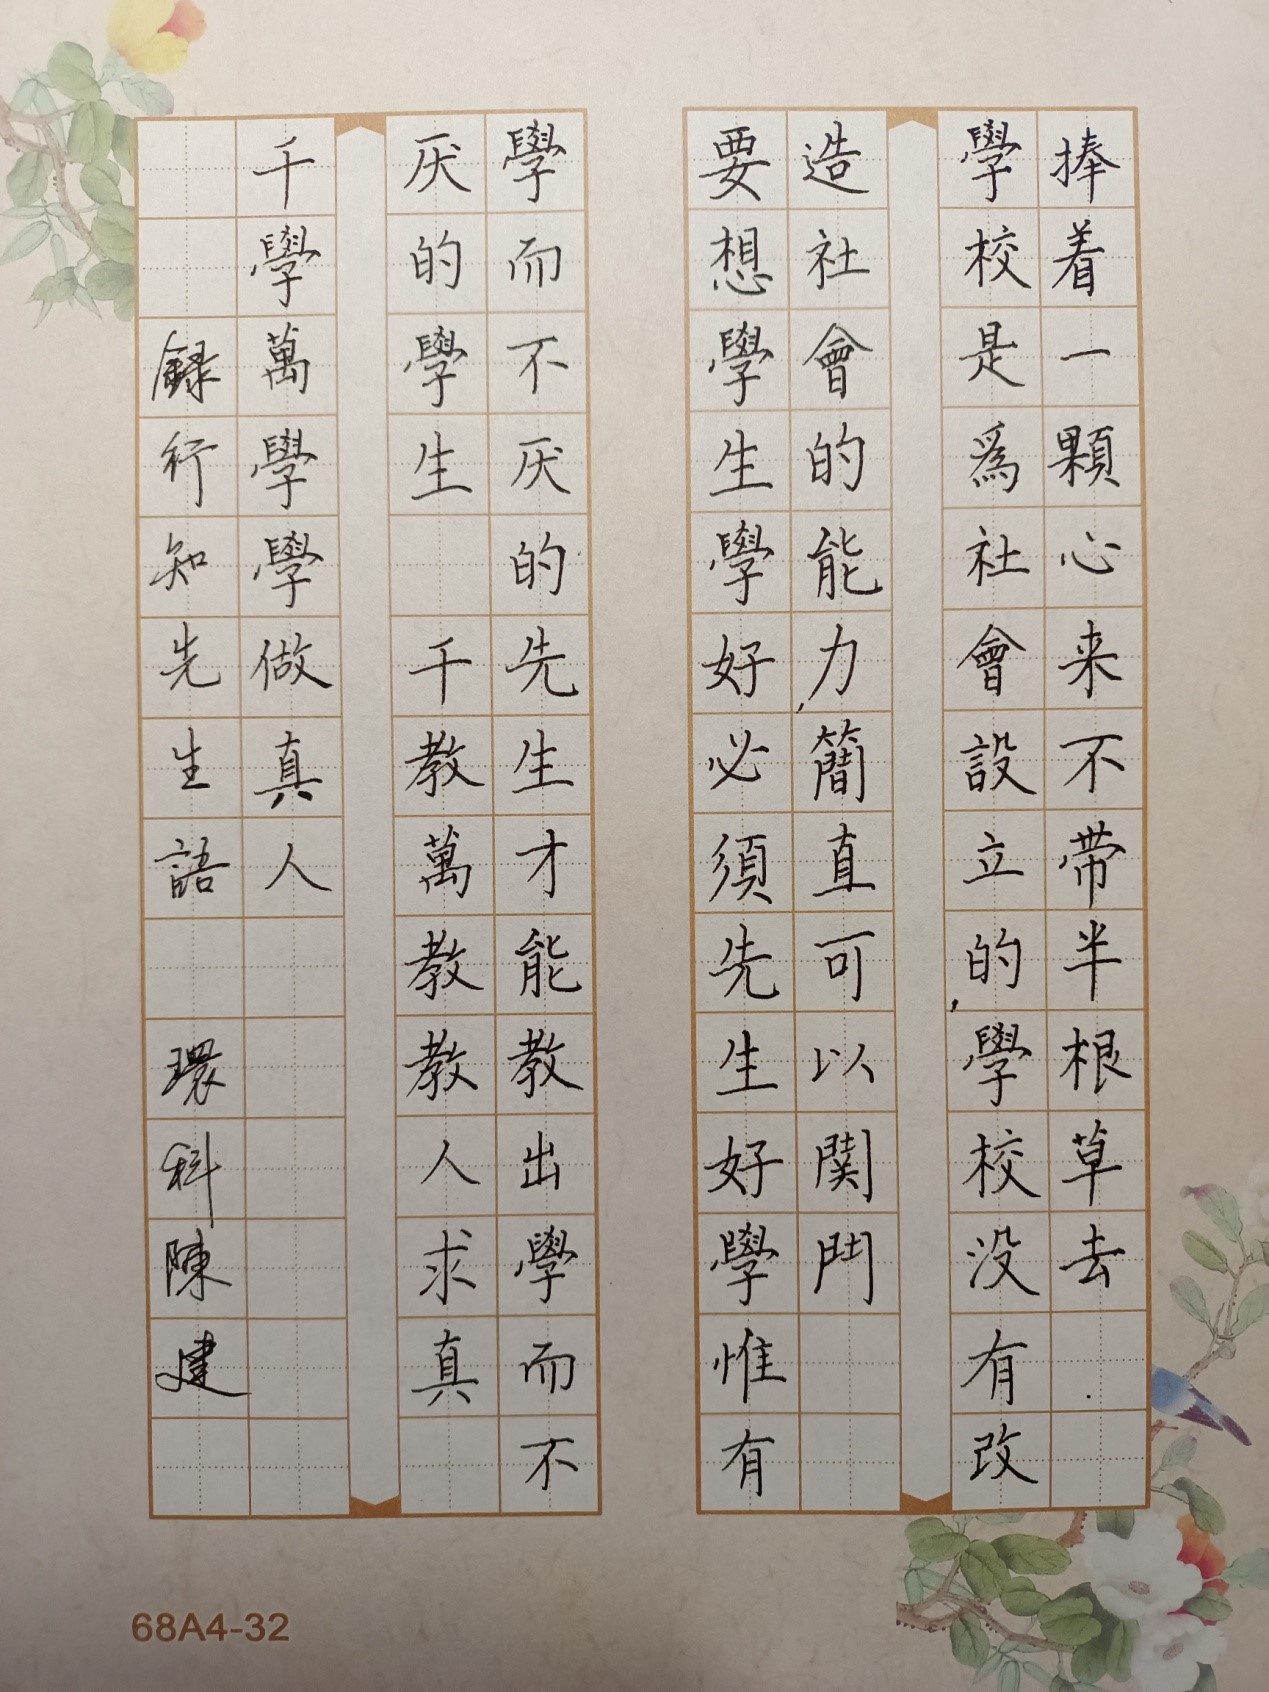 捧着一顆心来不带半根草去.
學校是爲社會設立的,學校没有改
造社會的能力,簡直可以関門
要想學生學好必須先生好學惟有
學而不厌的先生才能教出學而不
厌的學生 千教萬教教人求真
千學萬學學做真人
録行知先生語 環科陳建
68A4-32